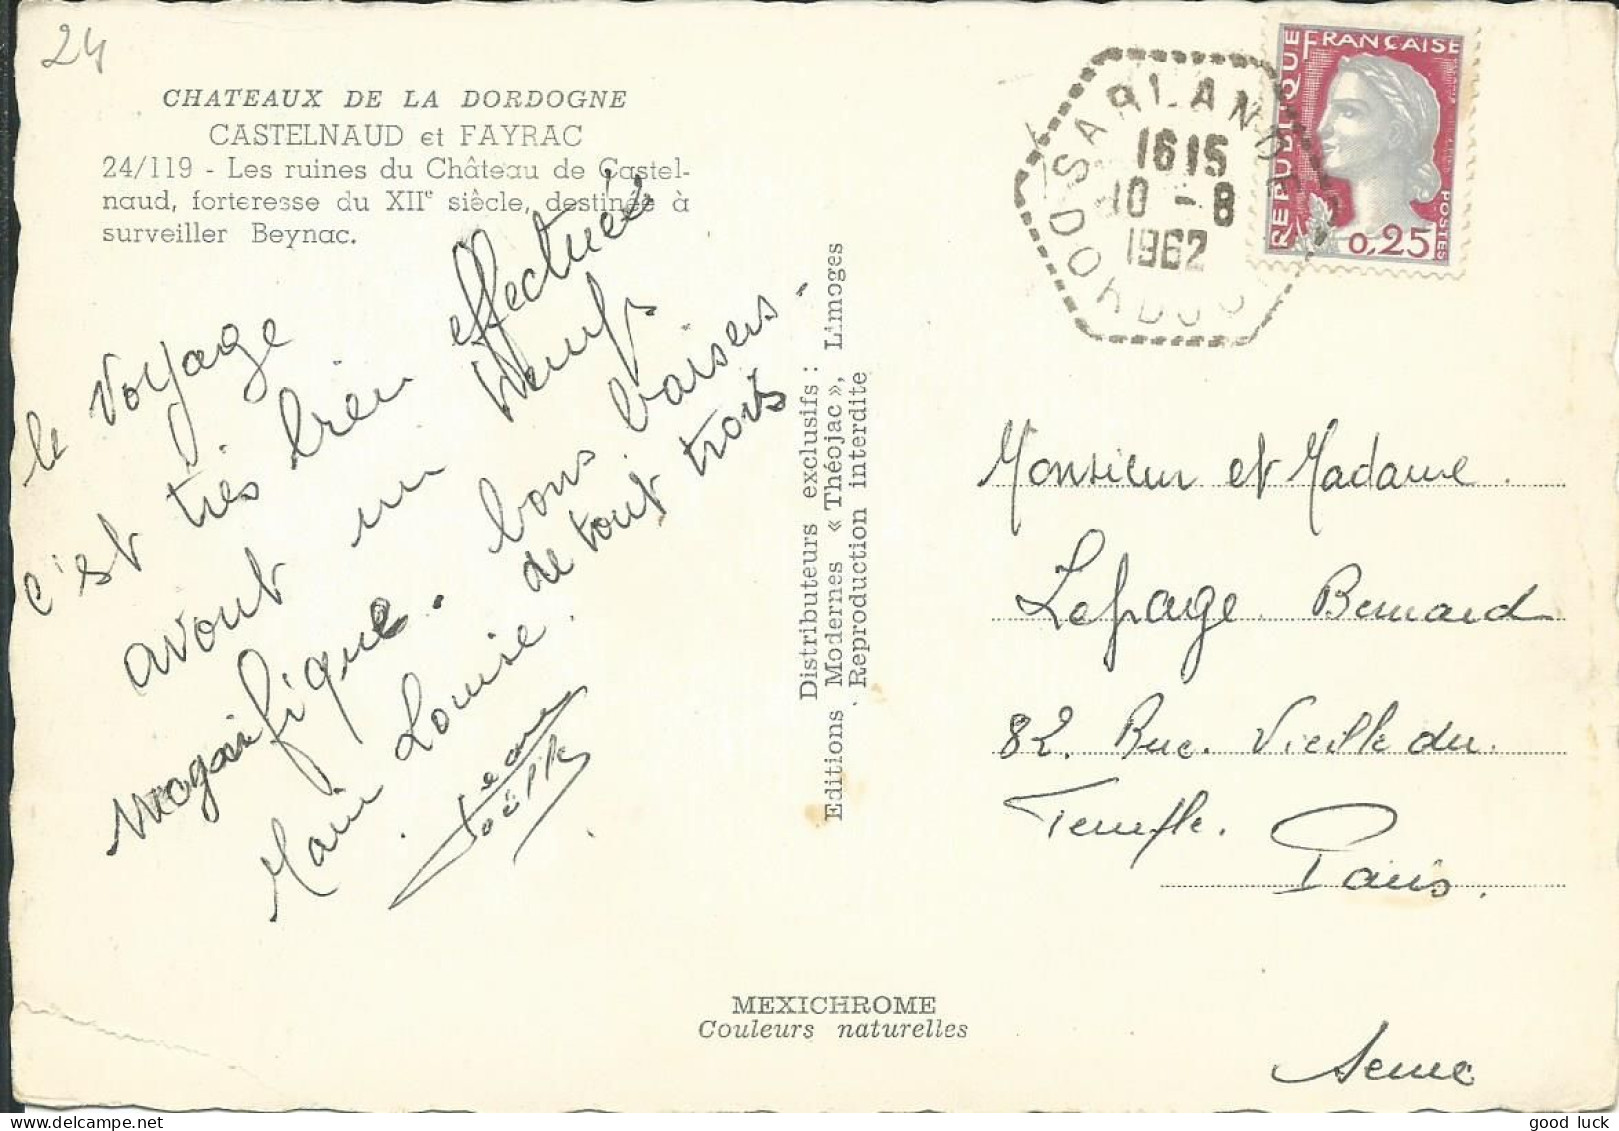 24
CHATEAUX DE LA DORDOGNE
CASTELNAUD et FAYRAC
24/119 - Les ruines du Château de Castel-
naud, forteresse du XIIe siècle, destinée à
surveiller Beynac.
le voyage
c'est très bien effectuée
avont un
magnifique. bons baisers
de tout trois
Marie Louise.
Jeanne
Joëlle
Distributeurs exclusifs :
Editions Modernes « Théojac », Limoges
Reproduction interdite
MEXICHROME
Couleurs naturelles
SARLANDE
1615
10 - 8
1962
DORDOG
REPUBLIQUE FRANÇAISE
POSTES
0,25
Monsieur et Madame
Lepage Bernard
82. Rue. Vieille du
Temple.
Paris.
Seine
good luck